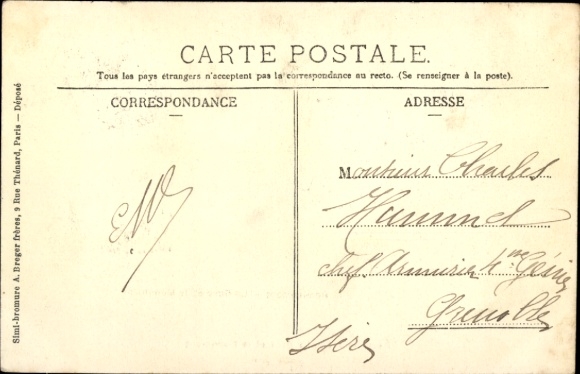 CARTE POSTALE.
Tous les pays étrangers n'acceptent pas la correspondance au recto. (Se renseigner à la poste).
CORRESPONDANCE
ADRESSE
Simi-bromure A. Breger frères, 9 Rue Thénard, Paris — Déposé
Monsieur Charles
Hammel
chef Armurier 4me Génie
Grenoble
Isère